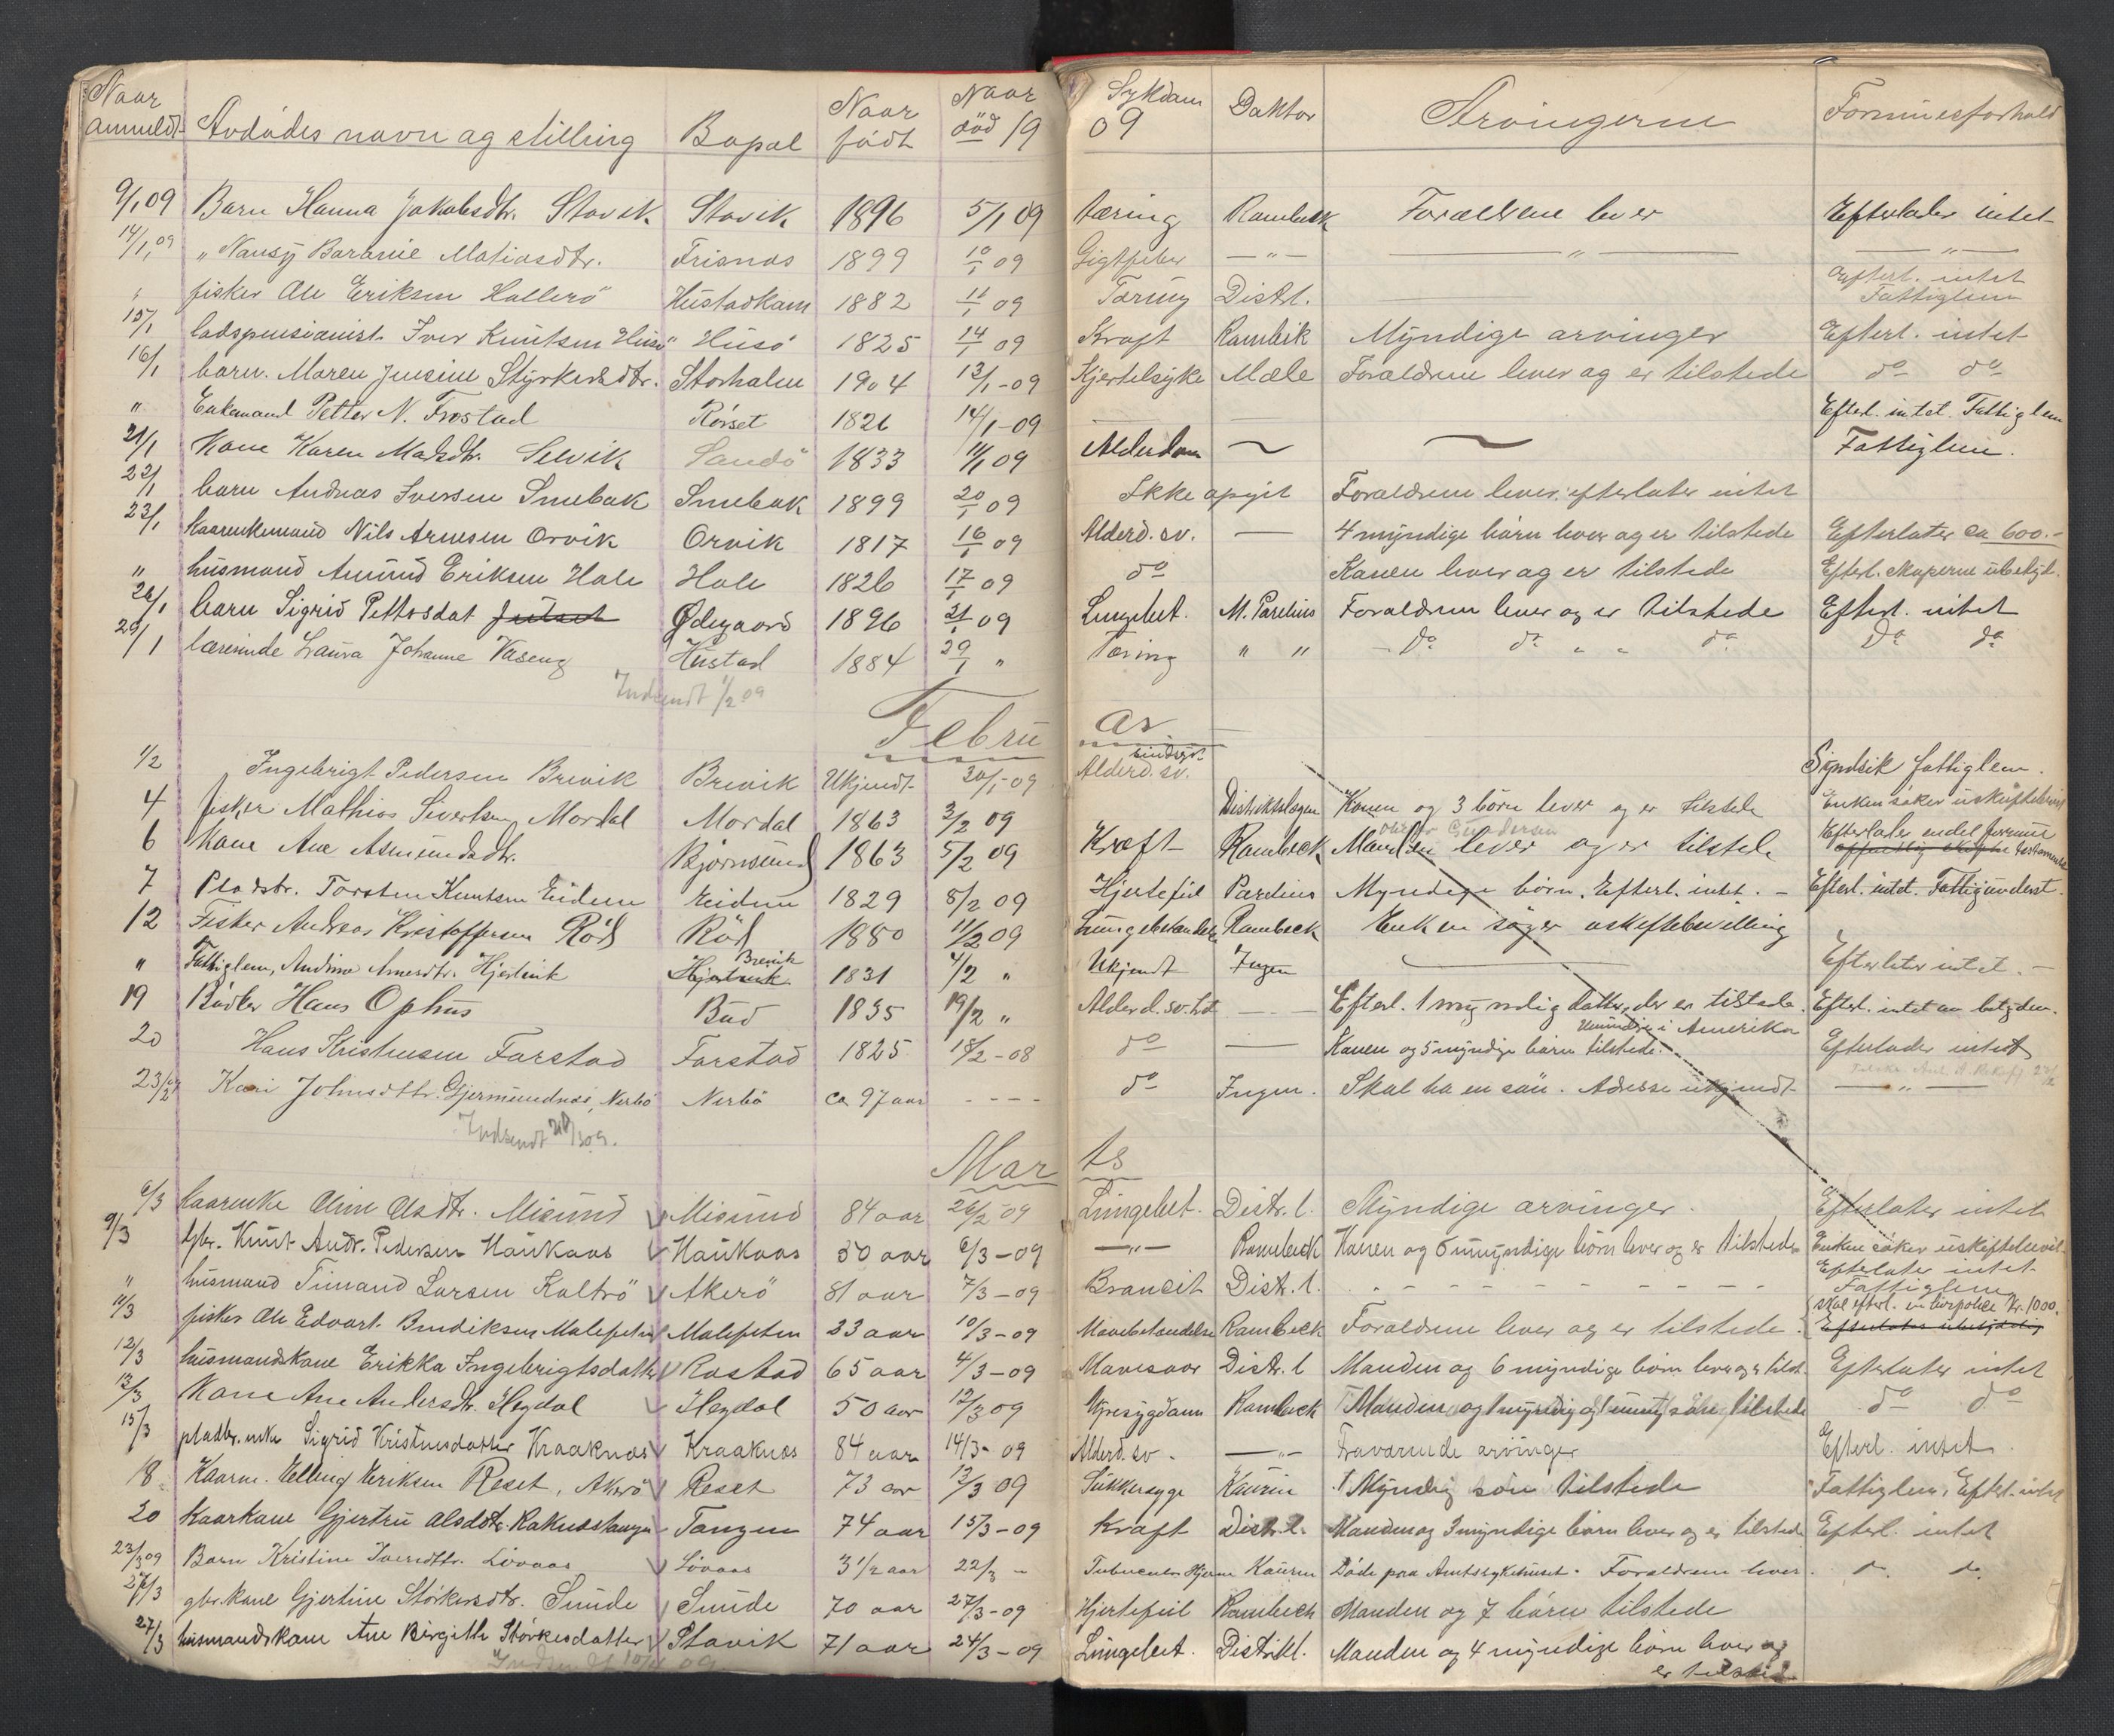 Naar anmeldt Avdödes navn og stilling Bopæl Naar födt Naar död 19 09 Sykdom Doktor Arvingerne Formuesforhold
9/1 09 Barn Hanna Jakobsdtr. Stavik Stavik 1896 5/1 09 tæring Rambeck Forældrene lever Efterlader intet
14/1 09 " Nansy Baranie Matiasdtr. Frisnæs 1899 10/1 09 Gigtfeber — " — — " — — " —
" fisker Ole Eriksen Hollerö Hustadkam 1882 11/1 09 Tæring Distl. Efterl. intet Fattiglem
15/1 lodspensionist Iver Knutsen Husö Husö 1825 14/1 09 Kræft Rambek Myndige arvinger Efterl. intet
16/1 barn. Maren Jensine Styrkersdtr. Storholm 1904 13/1-09 Kjertelsyke Mæle Forældrene lever og er tilstede do do
" Enkemand Petter N. Frostad Rörset 1826 14/1-09 Efterl. intet. Fattiglem
21/1 Kone Karen Madsdtr. Selvik Sandö 1833 11/1 09 Alderdom ~ ~ Fattiglem.
22/1 barn Andreas Iversen Smebak Smebak 1899 20/1 09 Ikke opgit Forældrene lever. efterlater intet
23/1 kaarenkemand Nils Arnesen Orvik Orvik 1817 16/1 09 Alderd. sv. — 4 myndige börn lever og er tilstede Efterlater ca 600.-
" husmand Amund Eriksen Hole Hole 1826 17/1 09 do Konen lever og er tilstede Efterl. ubetyl.
26/1 barn Sigrid Pettersdat Ødegaard 1896 21/1 09 Lungebet. M. Parelius Forældrene lever og er tilstede Efterl. intet
29/1 lærerinde Laura Johanne Vaseng Hustad 1884 29/1 " Tæring " " do do " " do do do
Indsendt 1/2 09
Februar
1/2 Ingebrigt Pedersen Brevik Brevik Ukjendt 30/1-09 Alderd. sv. sindsyk Syndsik fattiglem.
4 fisker Mathias Sivertsen Mordal Mordal 1863 3/2 09 Distriktslægen Konen og 3 börn lever og er tilstede Enken söker uskiftebevil
6 Kone Ane Asmundsdtr. Björnsund 1863 5/2 09 Kræft Rambeck Manden lever og er tilstede Efterlader endel formue offentlig skifte testamente
7 Pladsbr. Torsten Knutsen Eidem Eidem 1829 8/2 09 Hjertefeil Parelius Myndige börn. Efterl. intet. - Efterl. intet. Fattigunderst.
12 Fisker Andreas Kristoffersen Röd Röd 1880 11/2 09 Lungebetændelse Rambeck Enken söger uskiftebevilling
" Fattiglem, Andrine Arnesdtr. Hjertvik Hjertvik Brevik 1831 4/2 " Ukjendt Ingen Efterlater intet. -
19 Bödker Hans Ophus Bud 1835 19/2 " Alderd. sv.het - - - Efterl. 1 myndig datter, der er tilstede. Efterl. intet av betydn.
20 Hans Kristensen Farstad Farstad 1825 18/2-08 do — Konen og 5 myndige börn tilstede. i Amerika Efterlader intet
23/2 Kari Johnsdtr. Gjermundnes, Nerbö Nerbö ca 97 aar - - - - do Ingen. Skal ha en sön. Adresse ukjendt — " —
Indsendt 28/2 09.
Marts
6/3 kaarenke Oline Olsdtr. Misund Misund 84 aar 26/2 09 Lungebet. Distr. l. Myndige arvinger. Efterlater intet
9/3 gbr. Knut Andr. Pedersen Haukaas Haukaas 50 aar 6/3-09 — " — Rambeck Konen og 6 umyndige börn lever og er tilstede Enken söker uskiftebevil-
" husmand Timand Larsen Kaltrö Akerö 81 aar 7/3-09 Brancit Distr. l. - - - - - - - Efterlater intet Fattiglem
11/3 fisker Ole Edvart Bendiksen Malefeten Malefeten 23 aar 10/3-09 Mavebetændelse Rambeck Forældrene lever og er tilstede. skal efterl. en livspolice Kr. 1000. Efterlater ubetydelig
12/3 husmandskone Erikka Ingebrigtsdatter Rostad 65 aar 4/3-09 Mavesaar Distr. l Manden og 6 myndige börn lever og er tilst. Efterlater intet
13/3 Kone Ane Andersdtr. Hegdal Hegdal 50 aar 12/3 09 Nyresygdom Rambeck Manden og 1 myndig og 1 umynd sön tilstede do do
15/3 pladsbr. enke Sigrid Kristensdatter Kraaknæs Kraaknæs 84 aar 14/3-09 Alderd. sv. — " — Fraværende arvinger Efterl. intet.
18 Kaarm. Elling Eriksen Reset, Akerö Reset 73 aar 13/3 09 Sukkersyge Kaurin 1 Myndig sön tilstede Fattiglem. Efterl. intet
20 Kaarkone Gjertru Olsdtr. Raknestangen Tangen 74 aar 15/3-09 Kræft Distr. l. Manden og 3 myndige börn lever og er tilstede Efterl. intet
23/3 09 Barn Kristine Iversdtr. Lövaas Lövaas 3 1/2 aar 22/3 - Tuberculos Hjerne Kaurin Döde paa Amtssykehuset. Forældrene lever. do do
27/3 gbr. kone Gjertine Störkersdtr. Sunde Sunde 70 aar 27/3-09 Hjertefeil Rambeck Manden og 7 börn tilstede
27/3 husmandskone Ane Birgitte Störkersdatter Stavik 71 aar 24/3-09 Lungebet. Distriktl. Manden og 4 myndige börn lever og er tilstede